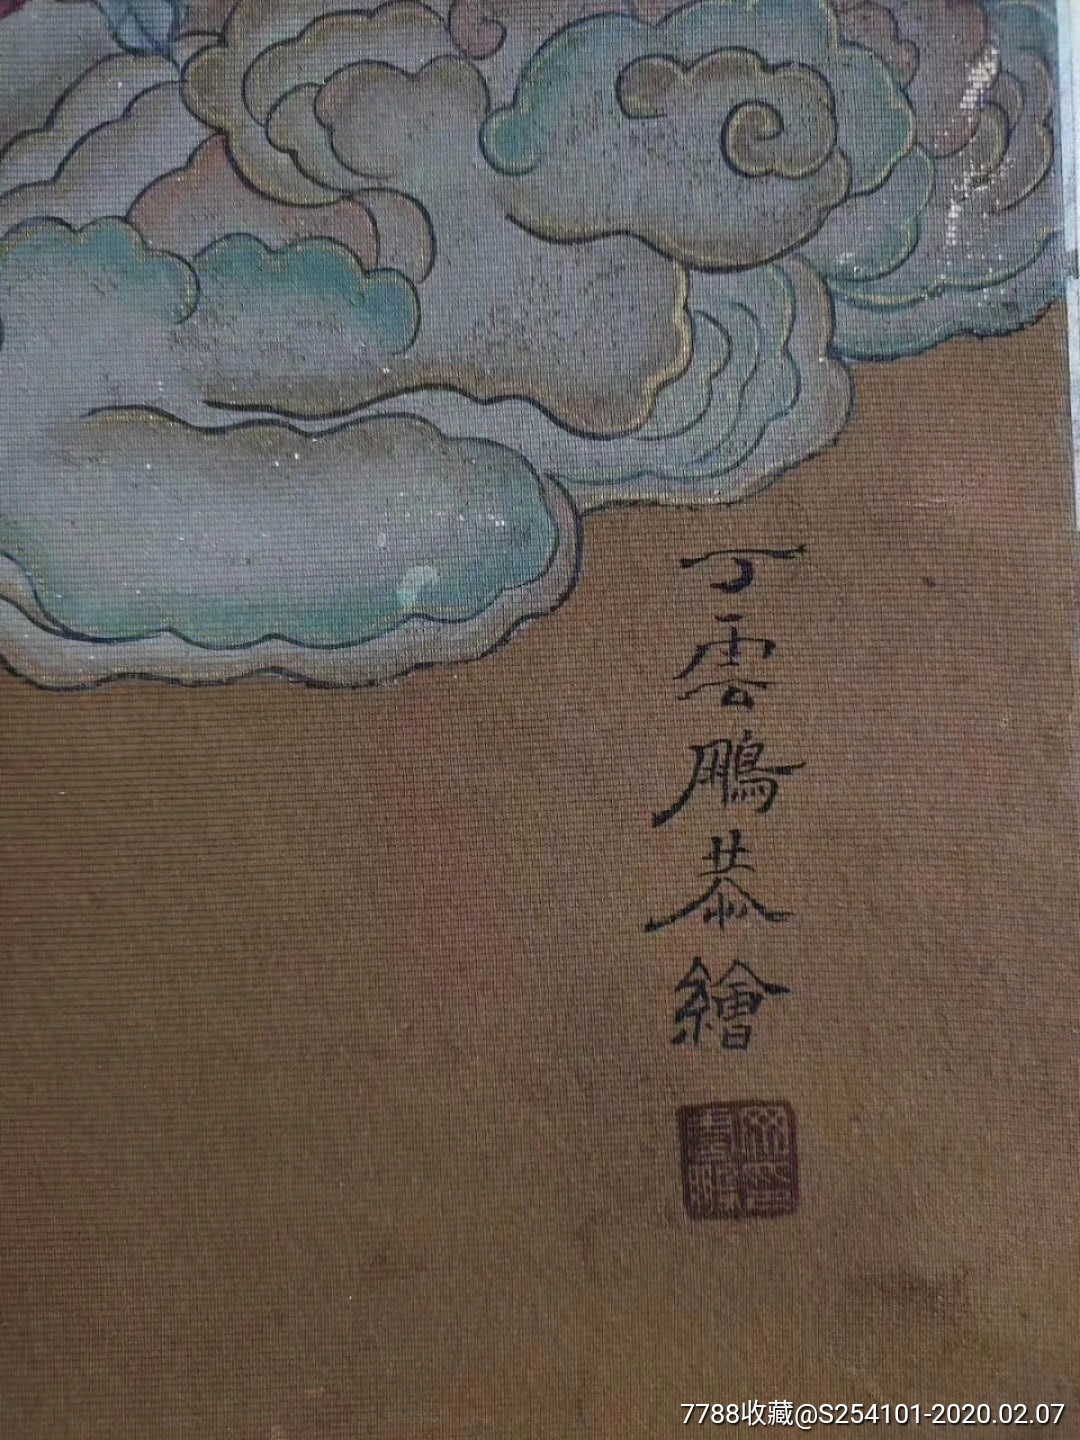 丁雲鵬恭繪
7788收藏@S254101-2020.02.07